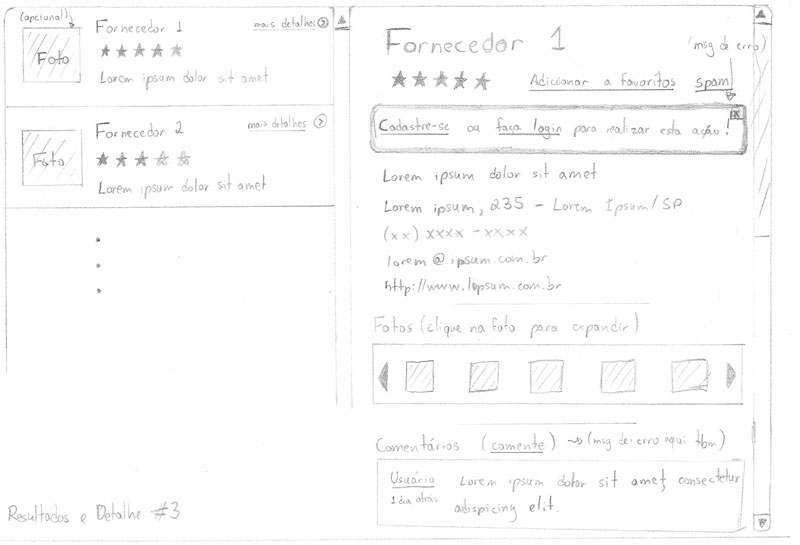 (opcional)
Foto
Fornecedor 1
mais detalhes
Lorem ipsum dolor sit amet
Foto
Fornecedor 2
mais detalhes
Lorem ipsum dolor sit amet
Resultados e Detalhe #3
Fornecedor 1
(msg de erro)
Adicionar a favoritos spam
x
Cadastre-se ou faça login para realizar esta ação!
Lorem ipsum dolor sit amet
Lorem ipsum, 235 - Lorem Ipsum/SP
(xx) xxxx-xxxx
lorem@ipsum.com.br
http://www.lopsum.com.br
Fotos (clique na foto para expandir)
Comentários (comente) ~> (msg de erro aqui tbm)
Usuário
1 dia atrás
Lorem ipsum dolor sit amet consectetur
adispicing elit.